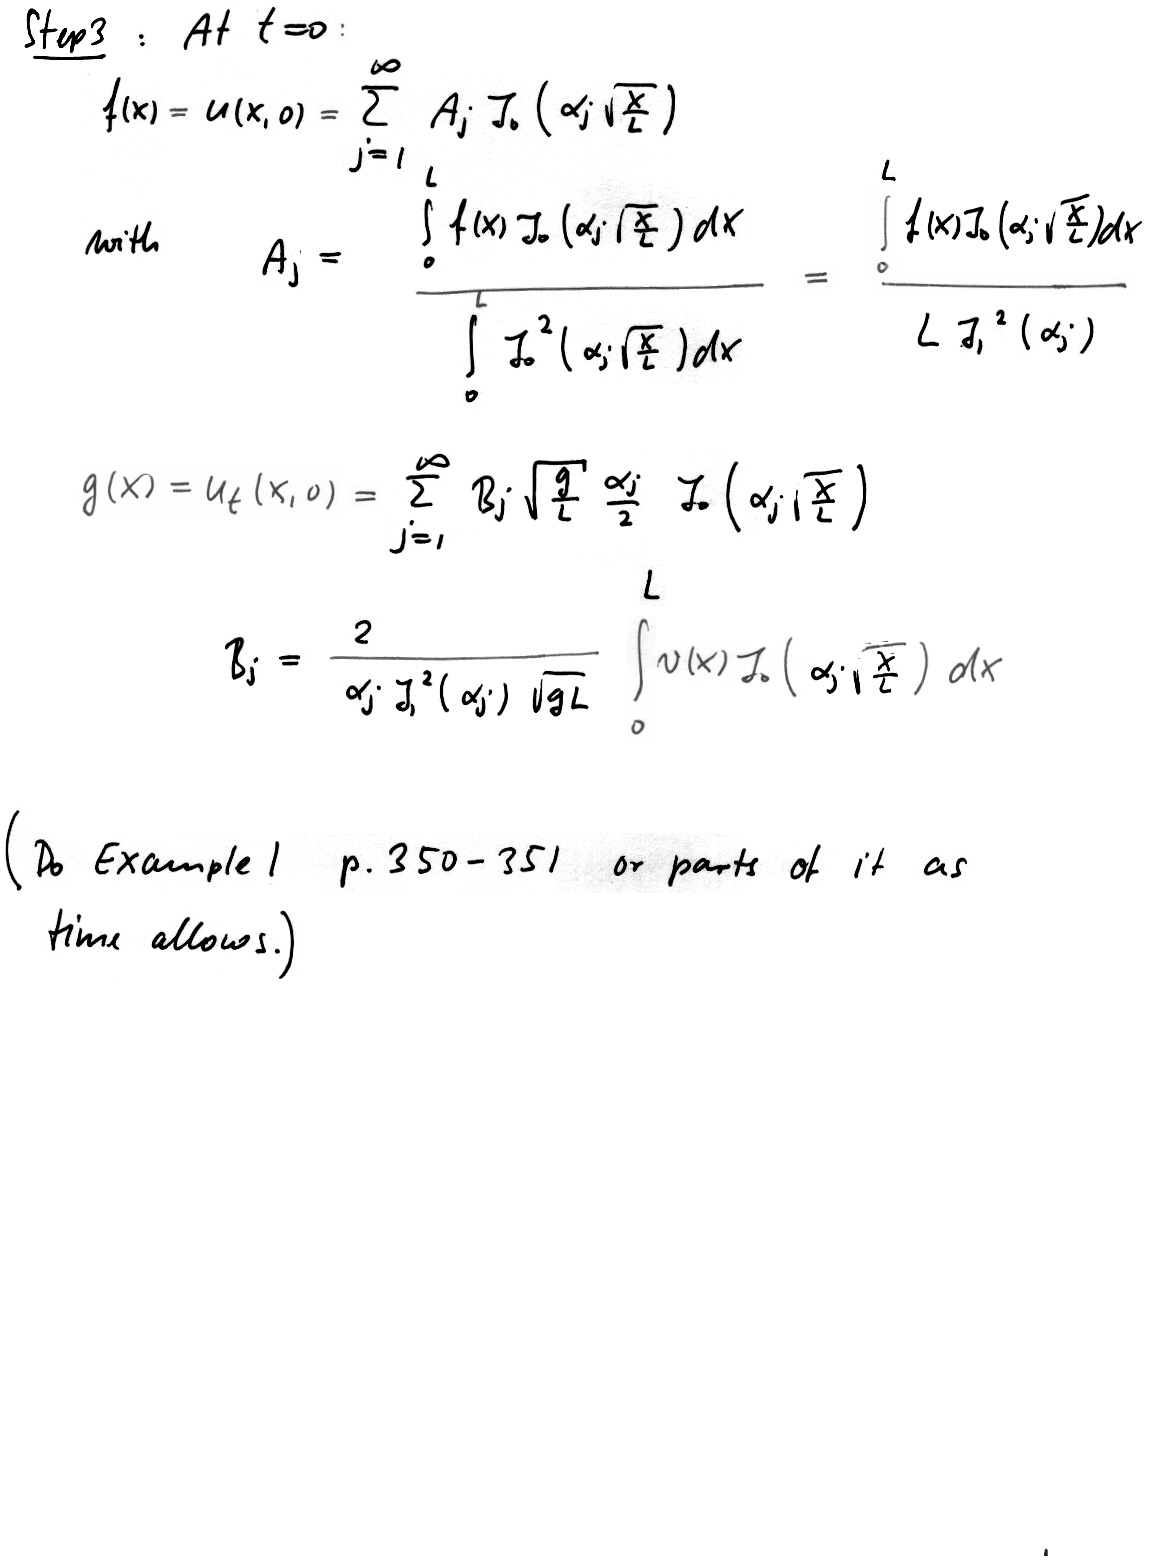 Step 3 : At t=0:
f(x) = u(x, 0) = ∑_{j=1}^{∞} A_j J_0 ( α_j √(x/L) )
with A_j = ∫_0^L f(x) J_0 (α_j √(x/L)) dx / ∫_0^L J_0^2 (α_j √(x/L)) dx = ∫_0^L f(x) J_0 (α_j √(x/L)) dx / L J_1^2 (α_j)
g(x) = u_t (x, 0) = ∑_{j=1}^{∞} B_j √(g/L) α_j/2 J_0 ( α_j √(x/L) )
B_j = 2 / α_j J_1^2 (α_j) √(gL) ∫_0^L v(x) J_0 ( α_j √(x/L) ) dx
(Do Example 1 p. 350-351 or parts of it as
time allows.)